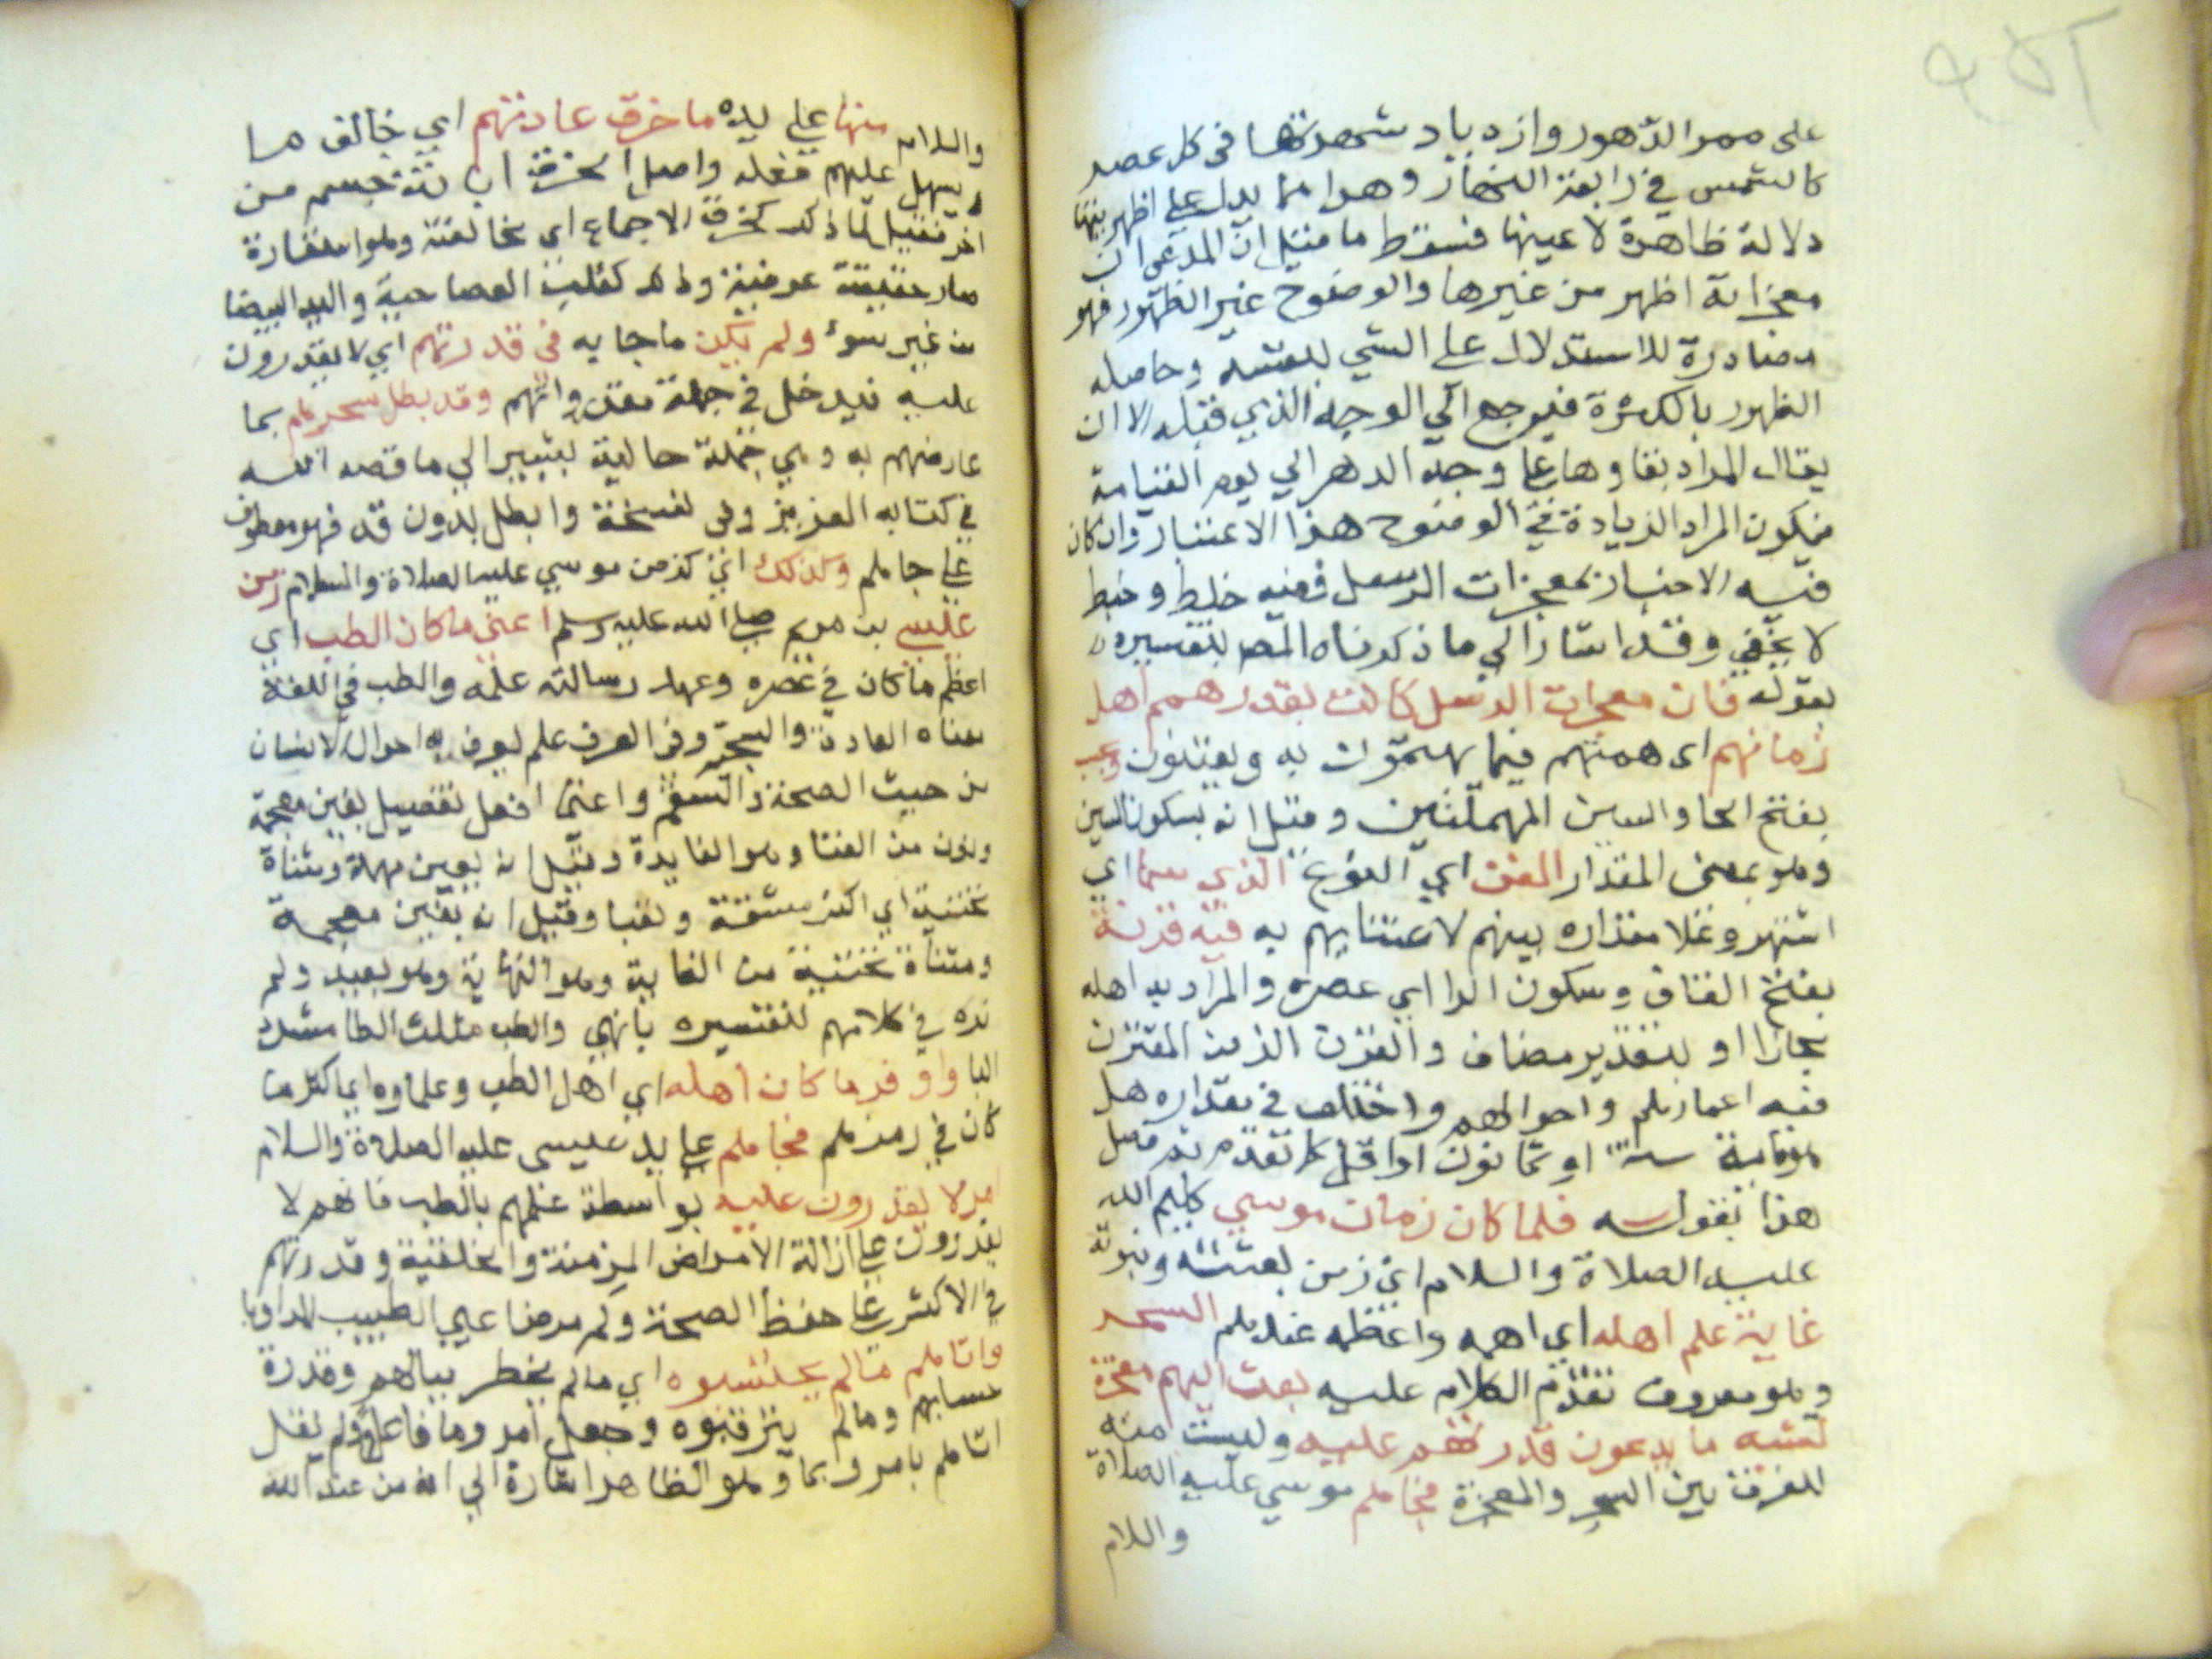 على ممر الدهور وازدياد شهرتها في كل عصر
كالشمس في رابعة النهار وهذا مما يدل على اظهريتها
دلالة ظاهرة لا عينها فسقط ما قيل ان المدعى ان
معجزاته اظهر من غيرها والوضوح عين الظهور فهو
مصادرة للاستدلال على الشي بنفسه وحاصله
الظهور بالكثرة فيرجع الي الوجه الذي قبله الا ان
يقال المراد بقاوها على وجه الدهر الي يوم القيامة
فيكون المراد الزيادة في الوضوح هذا الاعتبار وان كان
فيه الاخبار بمعجزات الرسل ففيه خلط وخبط
لا يخفي وقد اشار الي ما ذكرناه المص بتفسيره
بقوله فان معجزات الرسل كانت بقدر همم اهل
زمانهم اى همتهم فيما يهتمون به ويعتنون وبحسب
بفتح الحا والسين المهملتين وقيل انه بسكون السين
وهو بمعنى المقدار الفن اي النوع الذي سما اي
اشتهر وعلا مقداره بينهم لاعتنايهم به فيه قرنه
بفتح القاف وسكون الرا اي عصره والمراد به اهله
مجازا او بتقدير مضاف والقرن الزمن المقترن
فيه اعمارهم واحوالهم واختلف في مقداره هل
هو ماية سنة او ثمانون او اقل كما تقدم ثم فصل
هذا بقوله فلما كان زمان موسي كليم الله
عليه الصلاة والسلام اي زمن بعثته ونبوته
غاية علم اهله اي اهمه واعظمه عندهم السحر
وهو معروف تقدم الكلام عليه بعث اليهم بمعجزة
تشبه ما يدعون قدرتهم عليه وليست منه
للفرق بين السحر والمعجزة فجاهم موسي عليه الصلاة
والسلام
والسلام منها علي يده ما خرق عادتهم اي خالف ما
يسهل عليهم فعله واصل الخرق ابانة جسم من
اخر فقيل لما ذكر كخرق الاجماع اي مخالفته وهو استعارة
صار حقيقة عرفية وذلك كقلب العصا حية واليد البيضا
من غير سوء ولم يكن ما جا به في قدرتهم اي لا يقدرون
عليه فيدخل في جملة مقدوراتهم وقد بطل سحرهم بما
عارضهم به وهي جملة حالية يشير الي ما قصه الله
في كتابه العزيز وفي نسخة وابطل بدون قد فهو معطوف
علي جاهم وكذلك اي كزمن موسي عليه الصلاة والسلام زمن
عيسي بن مريم صلي الله عليه وسلم اغنى ما كان الطب اي
اعظم ما كان في عصره وعهد رسالته علمه والطب في اللغة
معناه العادة والسحر وفي العرف علم يعرف به احوال الانسان
من حيث الصحة والسقم واغنى افعل تفضيل بغين معجمة
ونون من الغنا وهو الفايدة وقيل انه بعين مهملة ومثناة
تحتية اي اكثر مشقة وتعبا وقيل انه بغين معجمة
ومثناة تحتية من الغاية وهو النهاية وهو بعيد ولم
نره في كلامهم لتفسيره بانهي والطب مثلث الطا مشدد
البا واوفر ما كان اهله اي اهل الطب وعلماوه اي اكثر ما
كان في زمنهم فجاهم علي يد عيسى عليه الصلاة والسلام
امر لا يقدرون عليه بواسطة علمهم بالطب فانهم لا
يقدرون علي ازالة الامراض المزمنة والخلقية وقدرتهم
في الاكثر علي حفظ الصحة وكم مرض اعيي الطبيب المداويا
واتاهم ما لم يحتسبوه اي ما لم يخطر ببالهم وقدرة
حسابهم وما لم يترقبوه وجعل امر وما فاعلا ولم يقل
اتاهم بامر وبما وهو الظاهر اشارة الي انه من عند الله